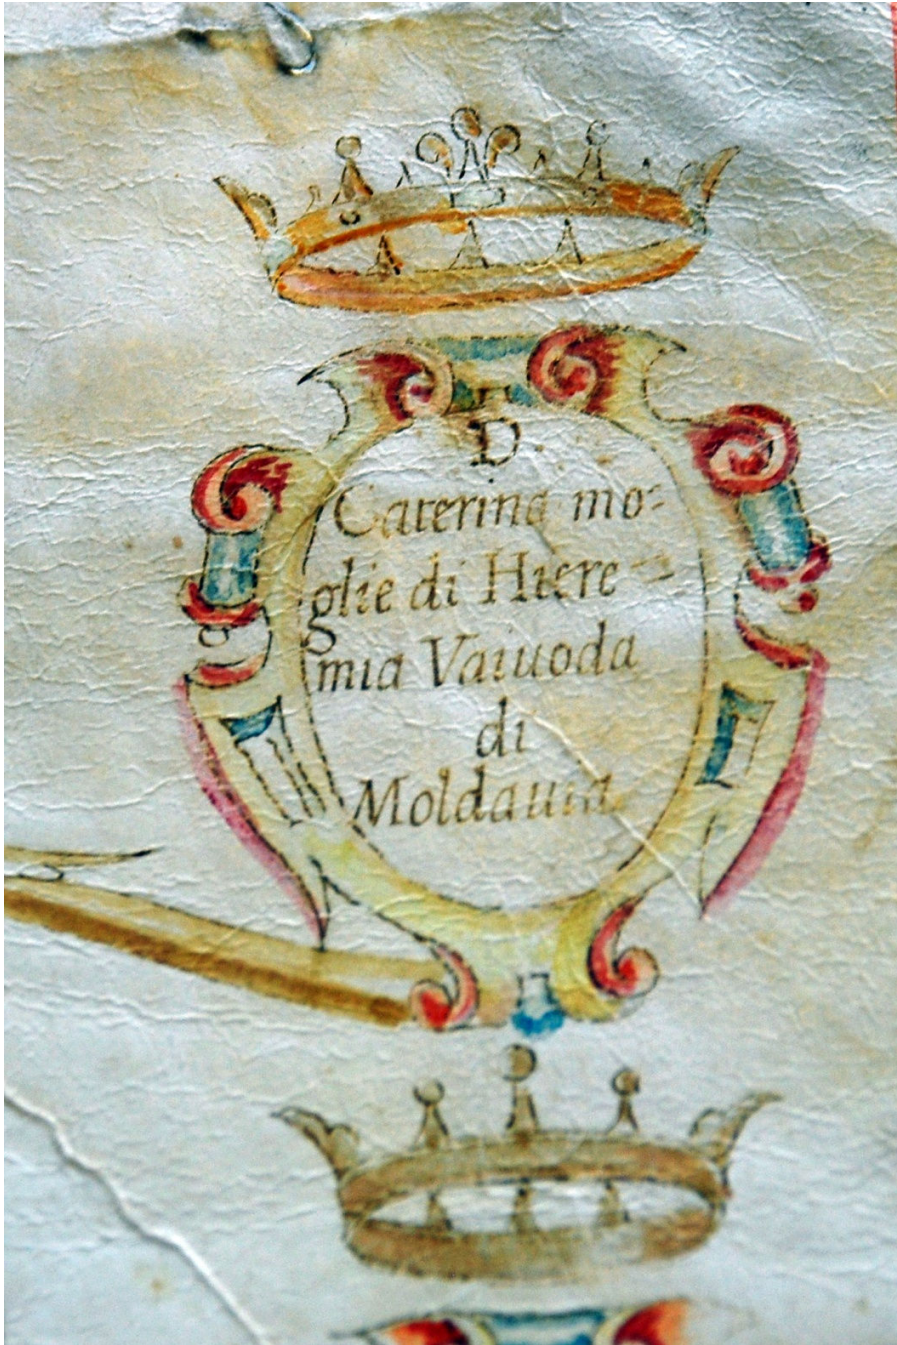 D.
Caterina mo=
glie di Hiere=
mia Vaiuoda
di
Moldauia